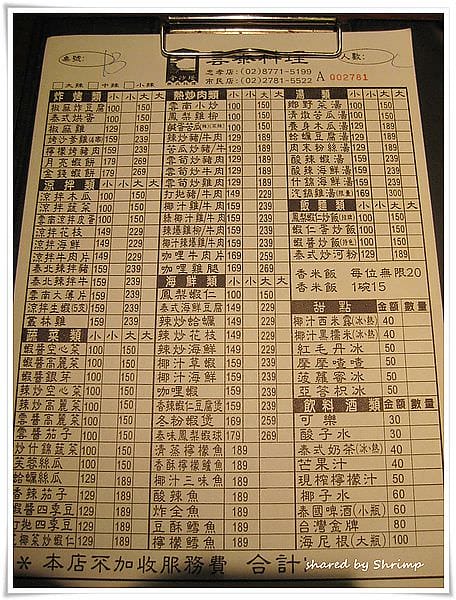 桌號：
雲泰料理
忠孝店：(02)8771-5199
市民店：(02)2781-5522
人數：
A 002781
大辣 中辣 小辣
炸烤類 小 小 大 大
椒麻炸豆腐 100 150
泰式烘蛋 100 150
椒麻雞 129 189
檸檬烤豬肉 159 239
月亮蝦餅 179 269
金錢蝦餅 179 269
涼拌類 小 小 大 大
涼拌木瓜 100 150
涼拌 100 150
雲南涼拌皮蛋 100 150
涼拌花枝 149 229
涼拌海鮮 159 239
涼拌牛肉片 159 239
泰北辣拌豬 159 239
泰北辣拌牛 159 239
雲南大薄片 159 239
涼拌生蝦(5支) 159 239
叢林雞 159 239
蔬菜類 小 小 大 大
蝦醬空心菜 100 150
蝦醬高麗菜 100 150
蝦醬銀芽 100 150
辣炒空心菜 100 150
辣炒高麗菜 100 150
雲醬高麗菜 100 150
雲醬茄子 100 150
炒什錦蔬菜 100 150
芙蓉絲瓜 100 150
蛤蠣絲瓜 129 189
香辣茄子 129 189
蝦醬四季豆 129 189
打拋四季豆 129 189
129 189
熱炒肉類 小 小 大 大
雲南小炒 100 150
鳳梨雞柳 100 150
100 150
辣炒豬/牛肉 129 189
苦瓜炒豬/牛肉 129 189
雲筍炒豬/牛肉 129 189
雲筍炒雞肉 129 189
打拋豬/牛肉 149 229
綠椰汁雞/牛肉 159 239
紅椰汁雞/牛肉 159 239
辣爆雞柳/牛肉 159 239
椰汁辣爆雞/牛肉 159 239
咖哩牛肉片 159 239
咖哩雞腿 169 249
海鮮類 小 小 大 大
鳳梨蝦仁 100 150
泰式海鮮豆腐 149 229
辣炒蛤蠣 159 239
辣炒花枝 149 229
辣炒海鮮 159 239
椰汁草蝦 159 239
椰汁海鮮 159 239
咖哩蝦 159 239
香辣蝦仁豆腐煲 159 239
冬粉蝦煲 169 259
泰味鳳梨蝦球 179 269
清蒸檸檬魚 189
香酥檸檬鱸魚 189
椰汁三味魚 189
酸辣魚 189
炸全魚 189
豆酥鱈魚 189
檸檬鱈魚 189
湯類 小 小 大 大
鄉野菜湯 100 150
清燉苦瓜湯 100 150
養身木瓜湯 100 150
蛤蠣豆腐湯 129 189
肉末粉絲湯 129 189
酸辣蝦湯 159 239
酸辣海鮮湯 159 239
十錦海鮮湯 159 239
汽鍋雞湯 169 300
飯麵類 小 小 大 大
鳳梨蝦仁炒飯 100 150
蝦仁蛋炒飯 100 150
蝦醬炒飯 100 150
泰式炒河粉 129 189
香米飯 每位無限20
香米飯 1碗15
甜點 金額 數量
椰汁西米露(冰•熱) 40
椰汁黑糯米(冰•熱) 40
紅毛丹冰 50
摩摩喳喳 50
波蘿蜜冰 50
亞荅枳冰 50
飲料酒類 金額 數量
可樂 30
酸子水 30
泰式奶茶(冰•熱) 40
芒果汁 40
現榨檸檬汁 50
椰子水 60
泰國啤酒(小瓶) 60
台灣金牌 80
海尼根(大瓶) 100
* 本店不加收服務費 合計
shared by Shrimp